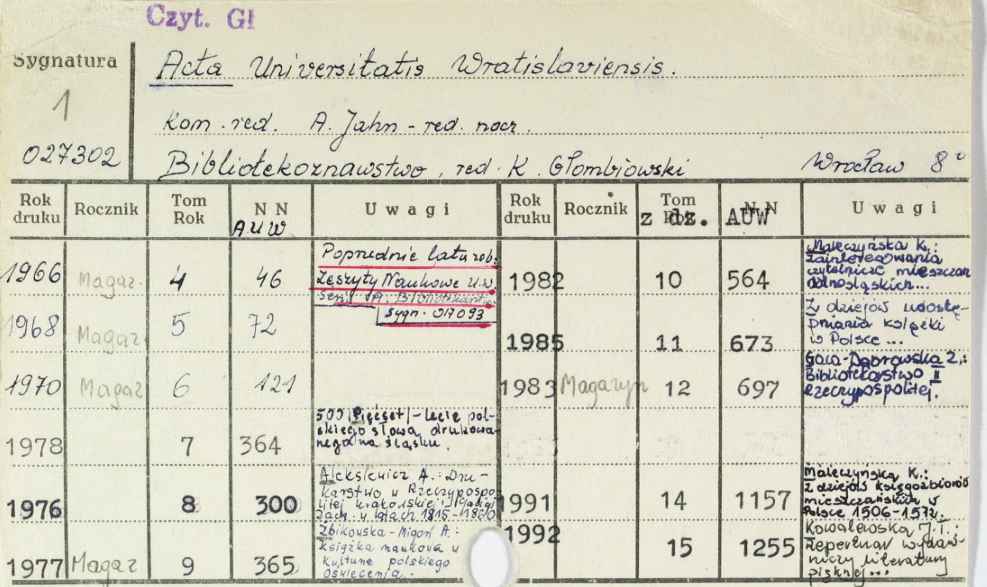 Czyt. Gł
Sygnatura
1
027302
Acta Universitatis Wratislaviensis.
Kom. red. A. Jahn - red. nacz.
Bibliotekoznawstwo, red. K. Głombiowski Wrocław 8°
Rok druku Rocznik Tom Rok N N AUW Uwagi Rok druku Rocznik Tom Rok z dz. N N AUW Uwagi
1966 Magaz. 4 46 Poprednie lata zob. Zeszyty Naukowe U.W. Ser. A. Bibliotekozn. sygn. 017093
1982 10 564 Maleczyńska K.: Zainteresowania czytelnicze mieszczan dolnośląskich...
1968 Magaz. 5 72
1985 11 673 Z dziejów udostępniania książki w Polsce ...
1970 Magaz 6 121
1983 Magazyn 12 697 Gaca-Dąbrowska Z.: Bibliotekarstwo II Rzeczypospolitej.
1978 7 364 500 /Pięćset/-lecie polskiego słowa drukowanego na Śląsku.
1976 8 300 Aleksiewicz A.: Drukarstwo w Rzeczypospolitej Krakowskiej i Galicji Zach. w latach 1815-1860
1991 14 1157 Maleczyńska K.: Z dziejów księgozbiorów mieszczańskich w Polsce 1506-1572.
1977 Magaz 9 365 Zbikowska-Migoń A.: Książka naukowa w kulturze polskiego oświecenia.
1992 15 1255 Kowalewska J.T.: Repertuar wydawniczy literatury pięknej...